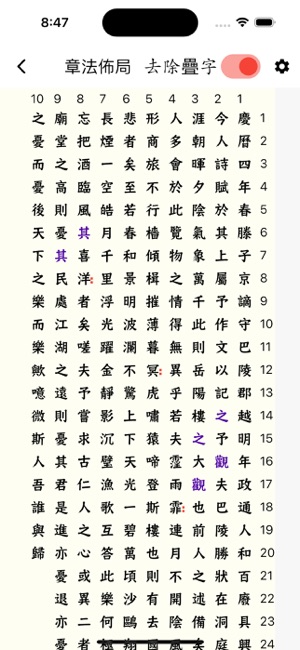 8:47
章法佈局 去除疊字
10 9 8 7 6 5 4 3 2 1
慶曆四年春滕子京謫守巴陵郡越明年政通人和百廢具
今人詩賦於其上屬予作文以記之予觀夫巴陵勝狀在洞庭
涯朝暉夕陰氣象萬千此則岳陽樓之大觀也前人之述備矣
人多會於此覽物之情得無異乎若夫霪雨霏:連月不開陰風
形商旅不行檣傾楫摧薄暮冥:虎嘯猿啼登斯樓也則有去國
悲者矣至若春和景明波瀾不驚上下天光一碧萬頃沙鷗翔
長煙一空皓月千里浮光躍金靜影沉璧漁歌互答此樂何極
忘把酒臨風其喜洋:者矣嗟夫予嘗求古仁人之心或異二者
廟堂之高則憂其民處江湖之遠則憂其君是進亦憂退亦憂
之憂而憂後天下之樂而樂歟噫微斯人吾誰與歸
1
2
3
4
5
6
7
8
9
10
11
12
13
14
15
16
17
18
19
20
21
22
23
24